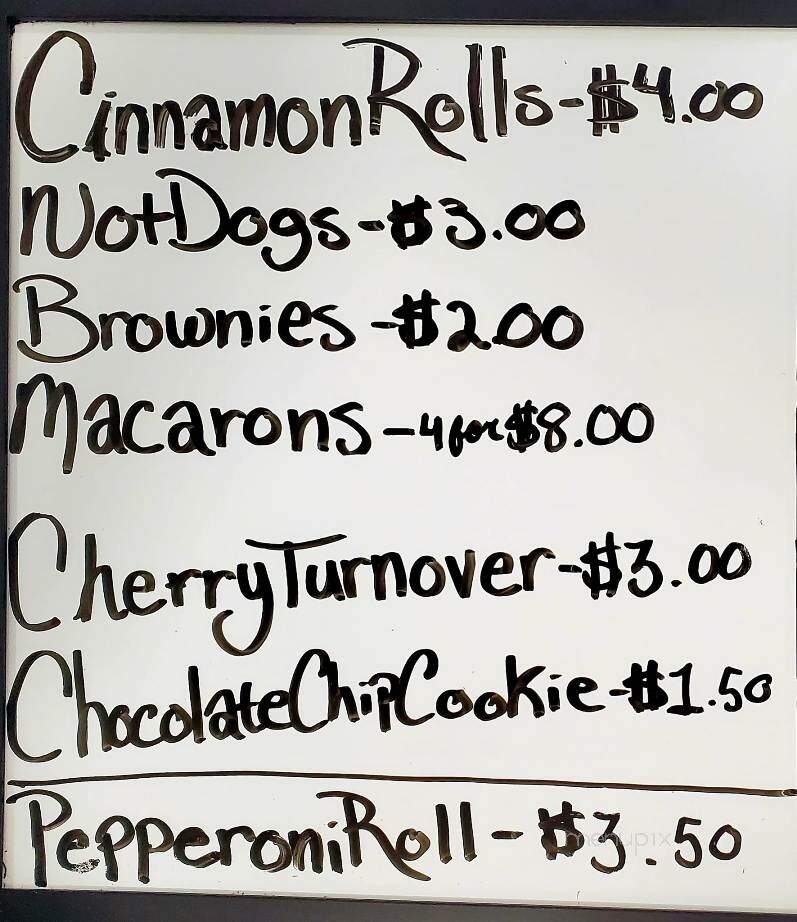 Cinnamon Rolls - $4.00
Not Dogs - $3.00
Brownies - $2.00
Macarons - 4 for $8.00
Cherry Turnover - $3.00
Chocolate Chip Cookie - $1.50
Pepperoni Roll - $3.50
menupix